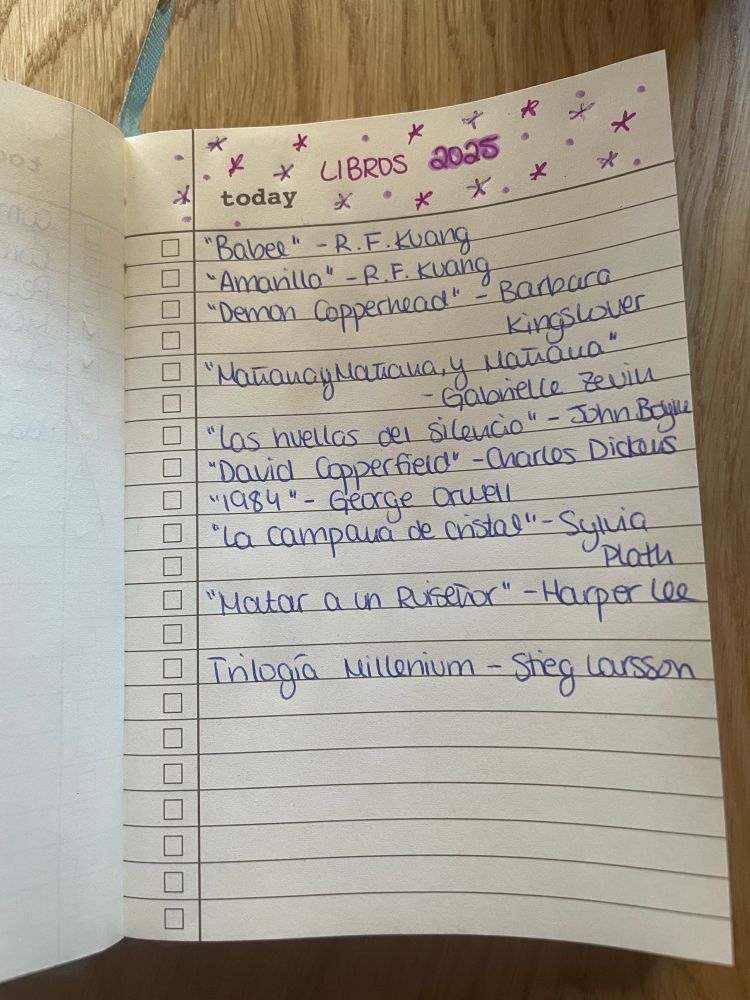 LIBROS 2025
today
"Babel" - R.F. Kuang
"Amarillo" - R.F. Kuang
"Demon Copperhead" - Barbara
Kingslover
"Mañana y Mañana, y Mañana"
- Gabrielle Zevin
"Las huellas del silencio" - John Boyne
"David Copperfield" - Charles Dickens
"1984" - George Orwell
"La campana de cristal" - Sylvia
Plath
"Matar a un Ruiseñor" - Harper Lee
Trilogía Millenium - Stieg Larsson